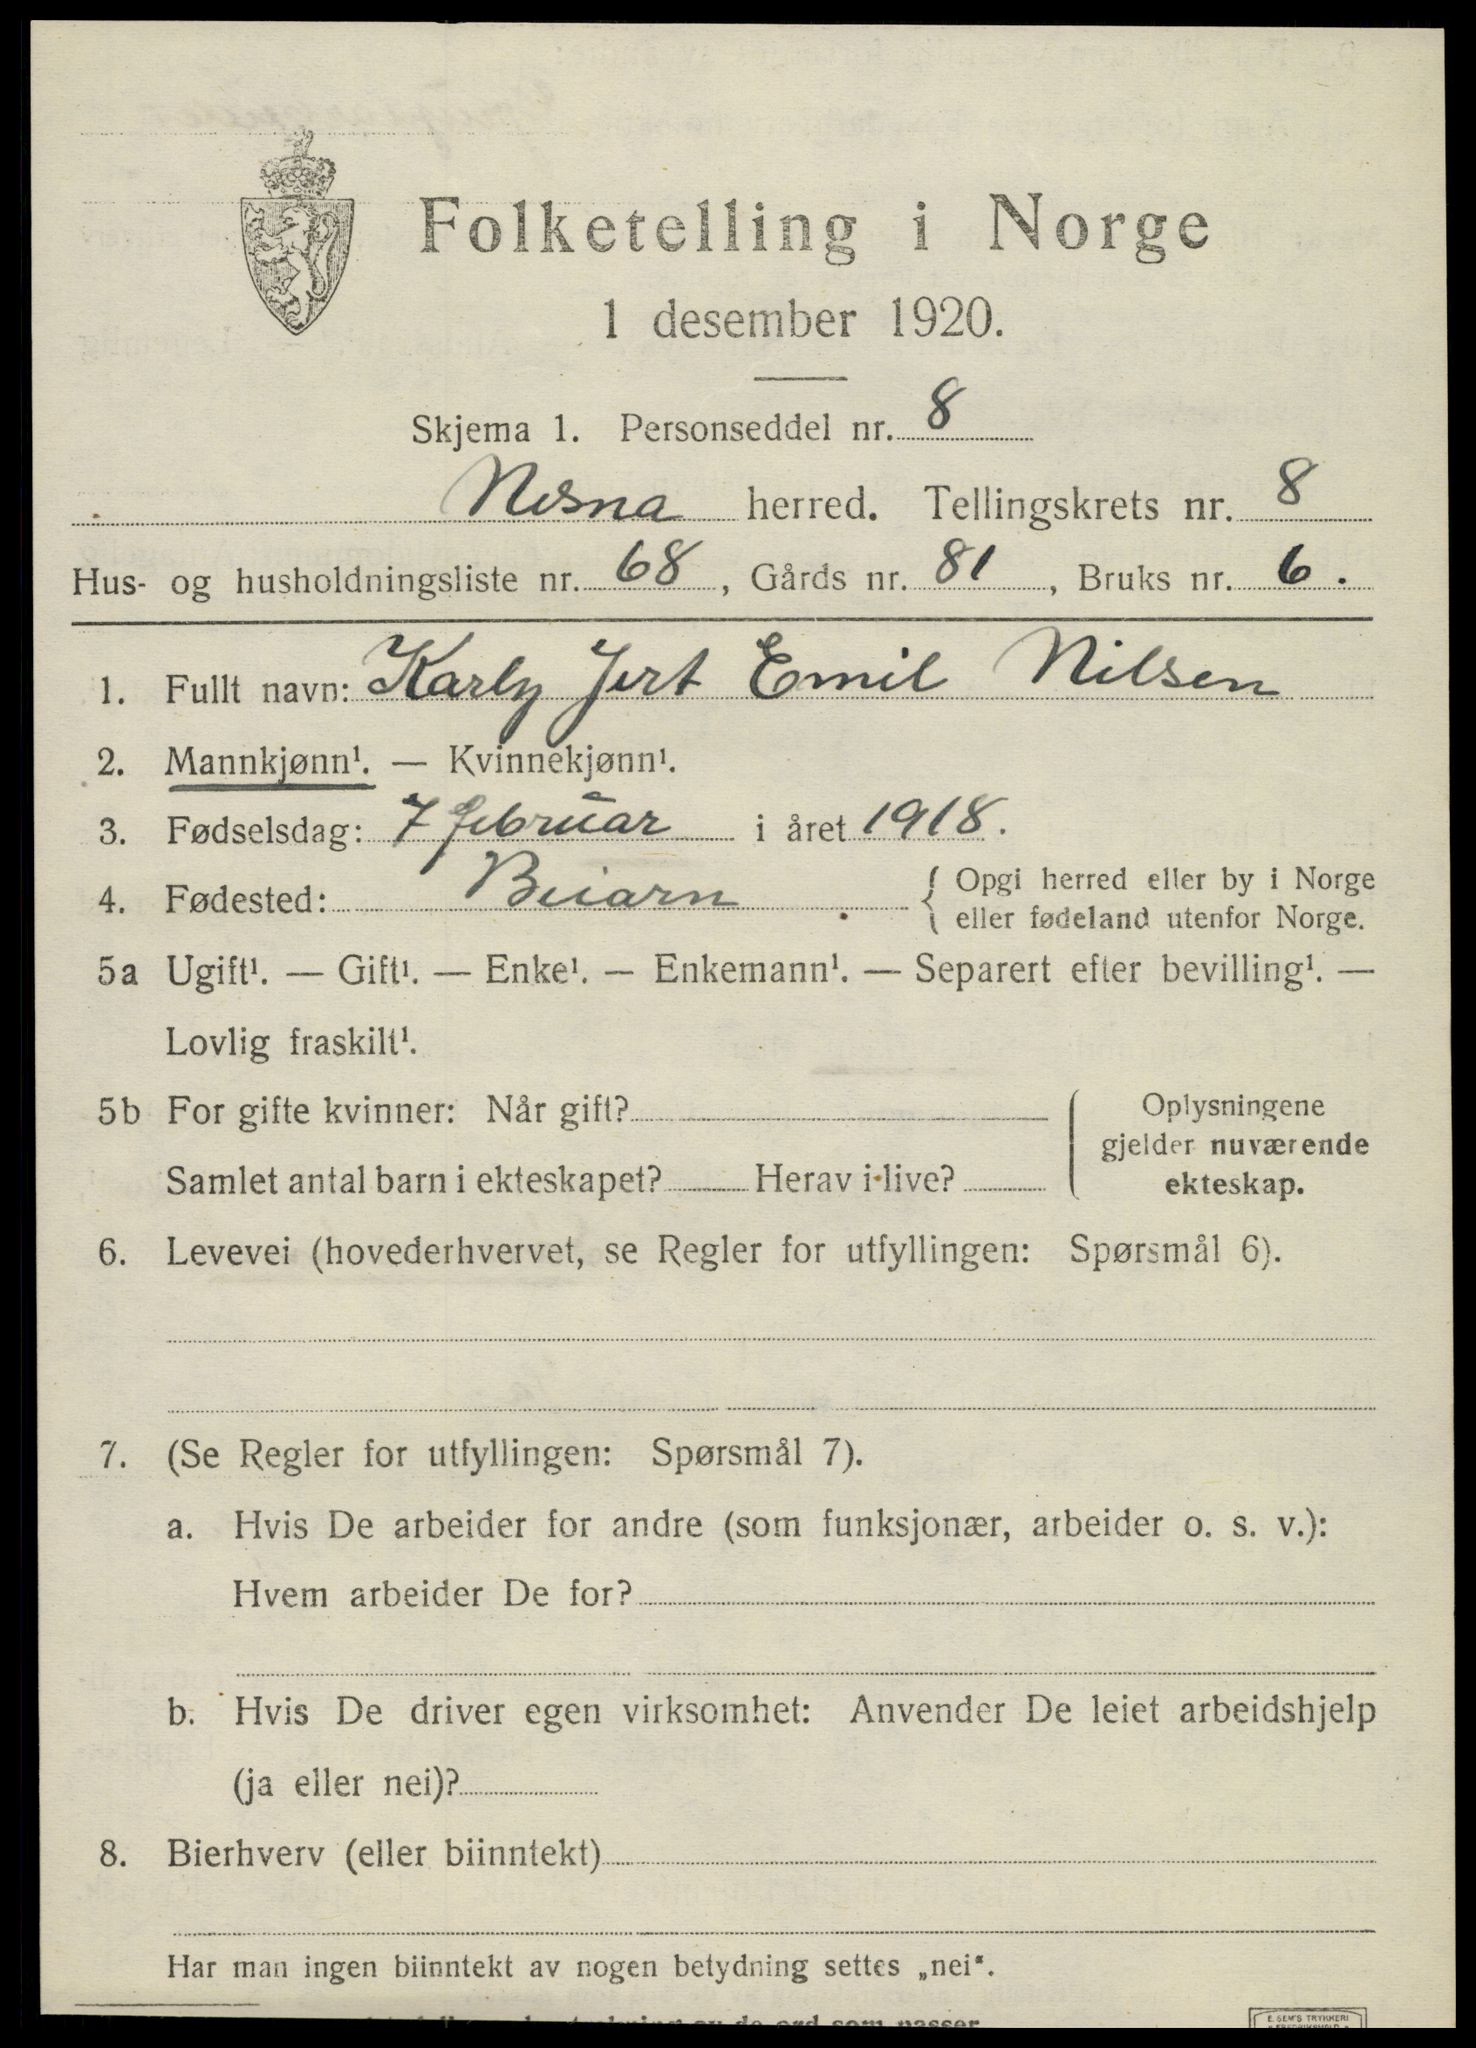 Folketelling i Norge
1 desember 1920.
Skjema 1. Personseddel nr. 8
Nesna herred. Tellingskrets nr. 8
Hus- og husholdningsliste nr. 68, Gårds nr. 81, Bruks nr. 6.
1. Fullt navn: Karly Jert Emil Nilsen
2. Mannkjønn¹. — Kvinnekjønn¹.
3. Fødselsdag: 7 februar i året 1918.
4. Fødested: Beiarn { Opgi herred eller by i Norge
eller fødeland utenfor Norge.
5a Ugift¹. — Gift¹. — Enke¹. — Enkemann¹. — Separert efter bevilling¹. —
Lovlig fraskilt¹.
5b For gifte kvinner: Når gift?
Samlet antal barn i ekteskapet? Herav i live?
Oplysningene
gjelder nuværende
ekteskap.
6. Levevei (hovederhvervet, se Regler for utfyllingen: Spørsmål 6).
7. (Se Regler for utfyllingen: Spørsmål 7).
a. Hvis De arbeider for andre (som funksjonær, arbeider o. s. v.):
Hvem arbeider De for?
b. Hvis De driver egen virksomhet: Anvender De leiet arbeidshjelp
(ja eller nei)?
8. Bierhverv (eller biinntekt)
Har man ingen biinntekt av nogen betydning settes „nei“.
av de ord som passer
E. SEM'S TRYKKERI